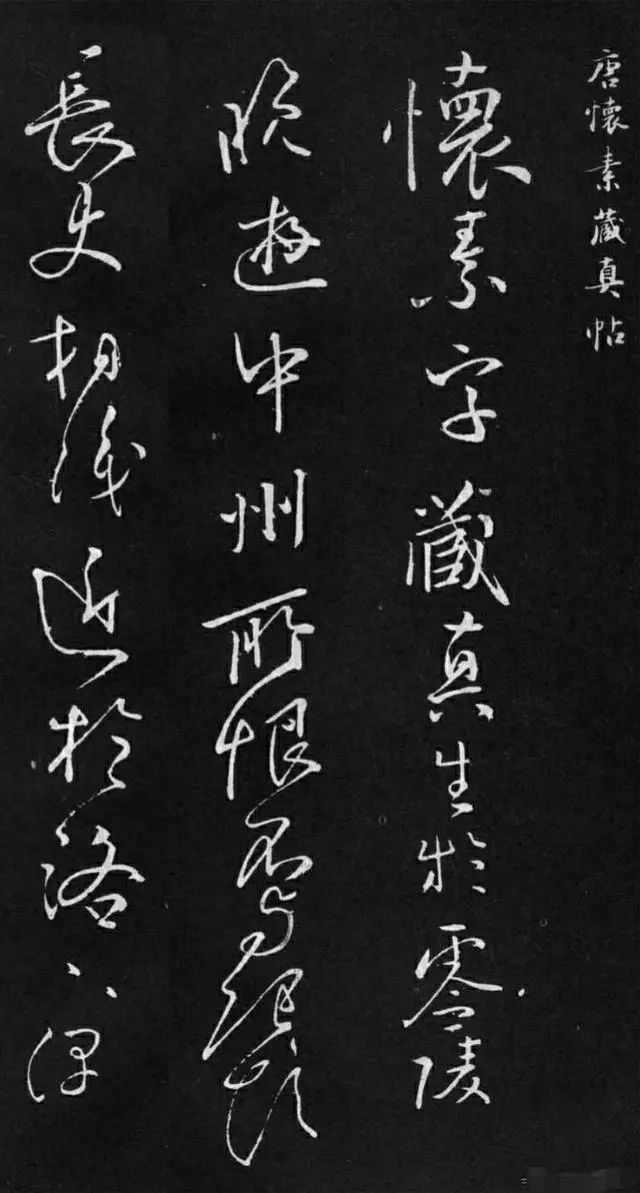 唐懷素藏真帖
懷素字藏真生於零陵
晚遊中州所恨不與張顛
長史相識近於洛下偶